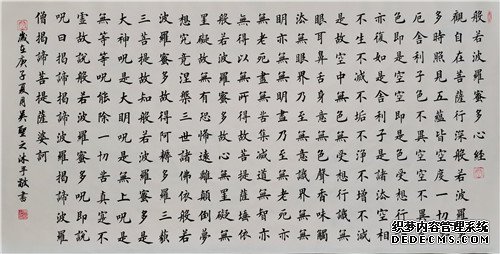 般若波羅蜜多心經
觀自在菩薩行深般若波羅蜜
多時照見五蘊皆空度一切苦
厄舍利子色不異空空不異色
色即是空空即是色受想行識
亦復如是舍利子是諸法空相
不生不滅不垢不淨不增不減
是故空中無色無受想行識無
眼耳鼻舌身意無色聲香味觸
法無眼界乃至無意識界無無
明亦無無明盡乃至無老死亦
無老死盡無苦集滅道無智亦
無得以無所得故菩提薩埵依
般若波羅蜜多故心無罣礙無
罣礙故無有恐怖遠離顛倒夢
想究竟涅槃三世諸佛依般若
波羅蜜多故得阿耨多羅三藐
三菩提故知般若波羅蜜多是
大神呪是大明呪是無上呪是
無等等呪能除一切苦真實不
虛故說般若波羅蜜多呪即說
呪曰揭諦揭諦波羅揭諦波羅
僧揭諦菩提薩婆訶
歲在庚子夏月吳聖之沐手敬書
织梦内容管理系统
DEDECMS.COM